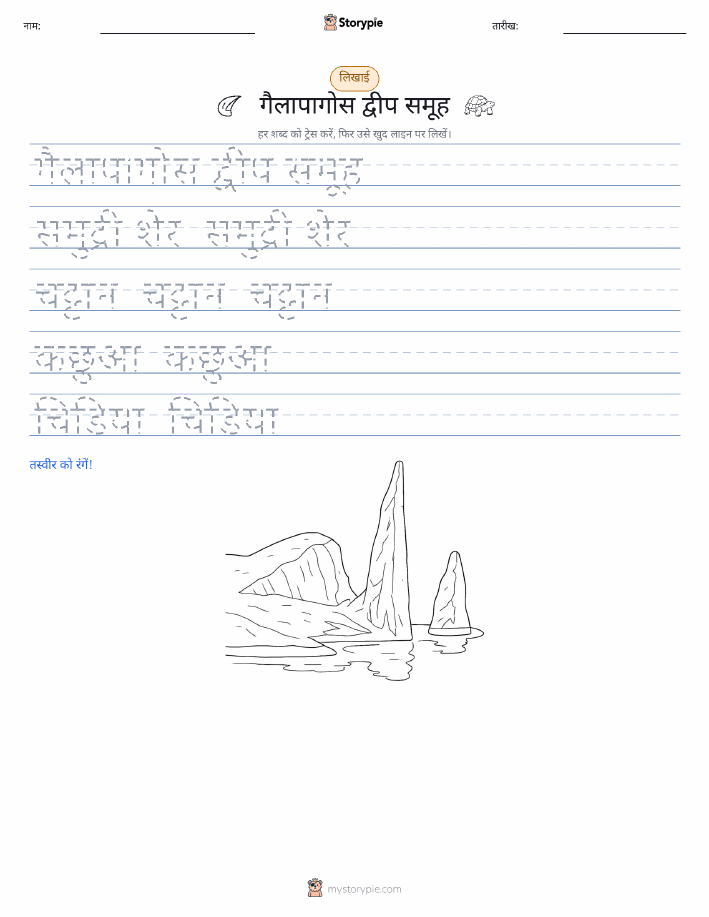 नाम:
Storypie
तारीख:
लिखाई
गैलापागोस द्वीप समूह
हर शब्द को ट्रेस करें, फिर उसे खुद लाइन पर लिखें।
गैलापागोस द्वीप समूह
समुद्री शेर समुद्री शेर
चट्टान चट्टान चट्टान
कछुआ कछुआ
चिडिया चिडिया
तस्वीर को रंगें!
mystorypie.com